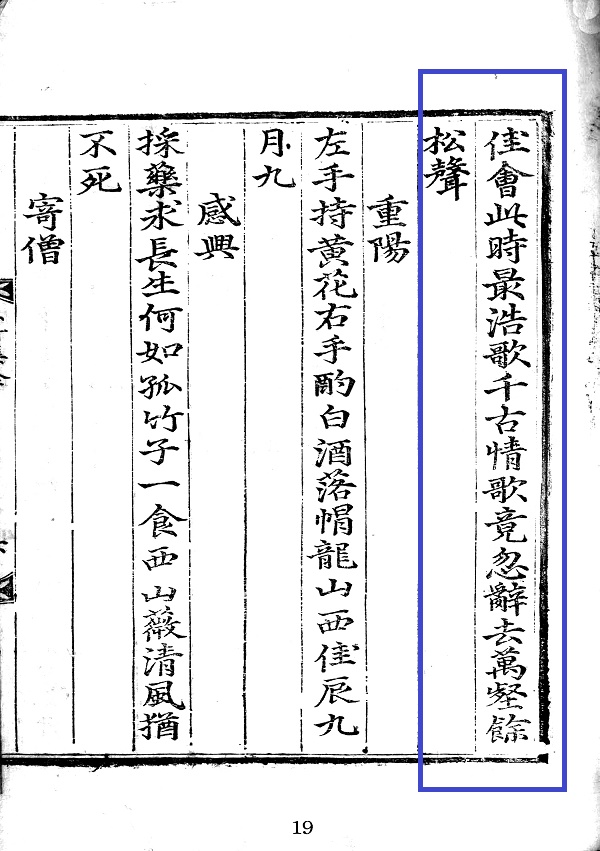 佳會此時最浩歌千古情歌竟忽辭去萬壑餘
松聲
重陽
左手持黄花右手酌白酒落帽龍山西佳辰九
月九
感興
採藥求長生何如孤竹子一食西山薇清風猶
不死
寄僧
19